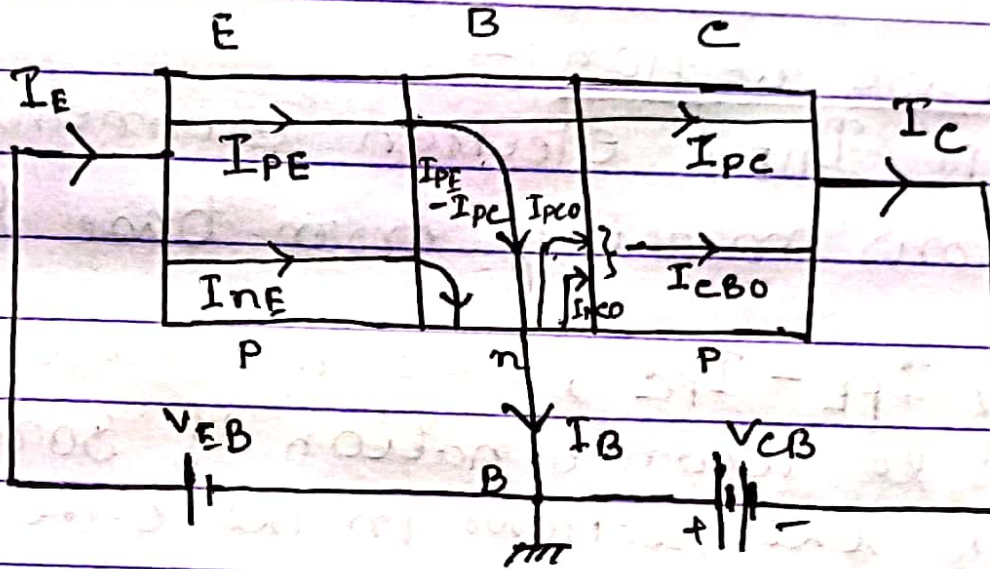 E B C
I_E
I_C
I_PE I_PE I_PC
-I_PC I_PCO
I_nE I_nCO I_CBO
P n P
V_EB I_B V_CB
B
+ -